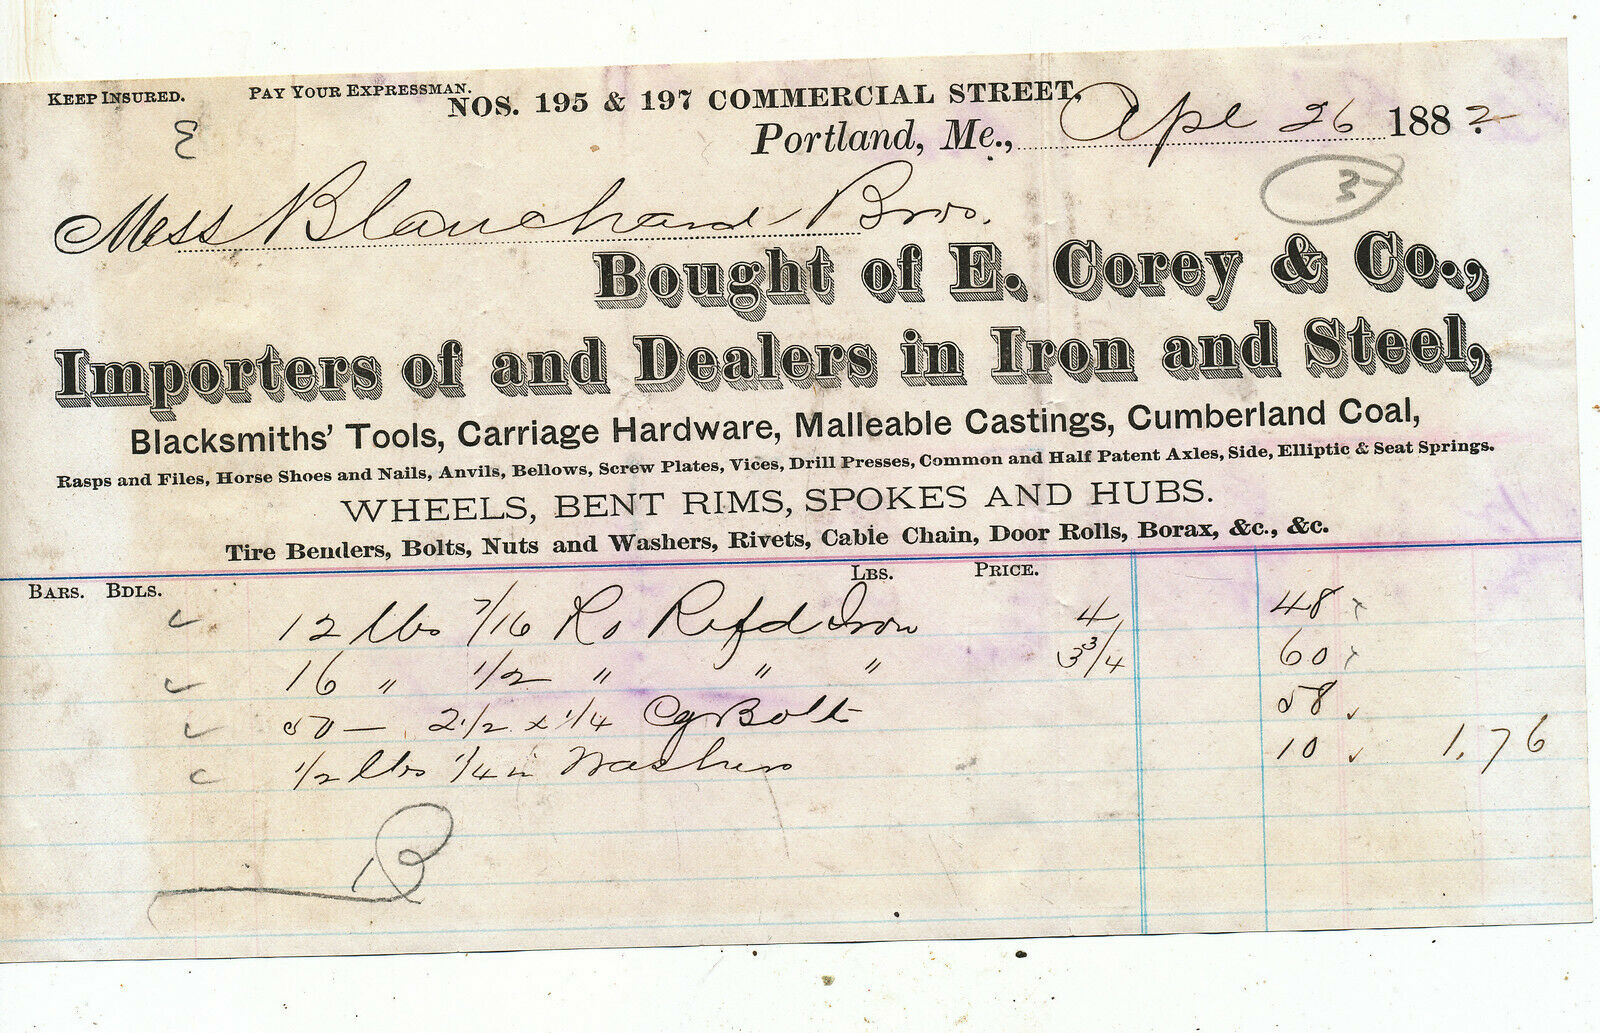 KEEP INSURED. PAY YOUR EXPRESSMAN.
NOS. 195 & 197 COMMERCIAL STREET,
Portland, Me., Apl 26 1882
3
Mess Blanchard Bros.
Bought of E. Corey & Co.,
Importers of and Dealers in Iron and Steel,
Blacksmiths' Tools, Carriage Hardware, Malleable Castings, Cumberland Coal,
Rasps and Files, Horse Shoes and Nails, Anvils, Bellows, Screw Plates, Vices, Drill Presses, Common and Half Patent Axles, Side, Elliptic & Seat Springs.
WHEELS, BENT RIMS, SPOKES AND HUBS.
Tire Benders, Bolts, Nuts and Washers, Rivets, Cable Chain, Door Rolls, Borax, &c., &c.
BARS. BDLS. LBS. PRICE.
12 lbs 7/16 Ro Refd Iron 4 48
16 " 1/2 " " " 3 3/4 60
50 — 2 1/2 x 1/4 Cg Bolts 58
1/2 lbs 1/4 in Washers 10 1.76
B